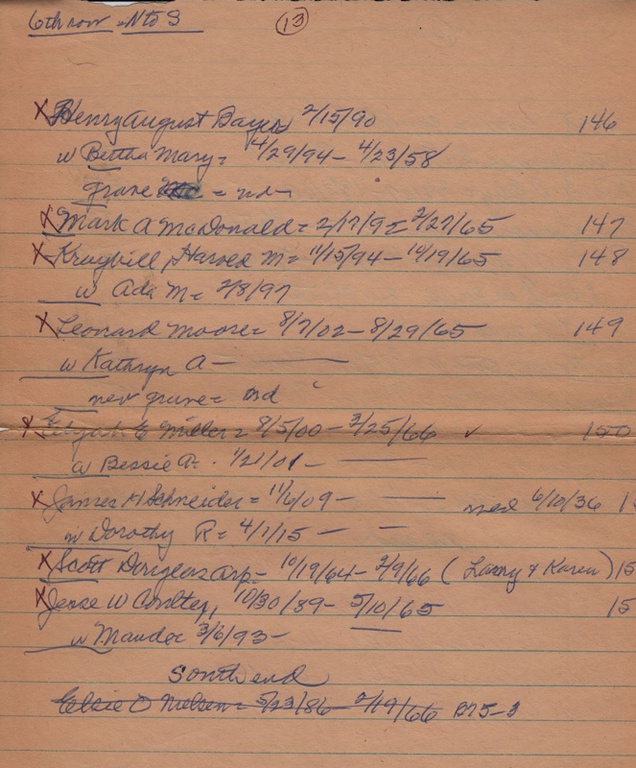 6th row - N to S
13
X Henry August Bayer 2/15/90 146
w Bertha Mary = 4/29/94 - 4/23/58
grave = nd
X Mark A McDonald = 2/17/92 2/27/65 147
X Kraybill, Harold M = 11/15/94 - 10/19/65 148
w Ada M = 2/8/97
X Leonard Moore = 8/7/02 - 8/29/65 149
w Kathryn A -
new grave = nd
X Elijah E Miller = 8/5/00 - 3/25/66 ✓ 150
w Bessie A = 1/21/01 -
X James H Schneider = 11/6/09 - med 6/10/36 1
w Dorothy R = 4/1/15 -
X Scott Douglas Arp = 10/19/64 - 2/9/66 (Larry & Karen) 15
X Jesse W Coulter, 10/30/89 - 5/10/65 15
w Maude 3/6/93 -
South end
Elsie O Nielsen = 5/23/86 - 2/19/66 B75-3